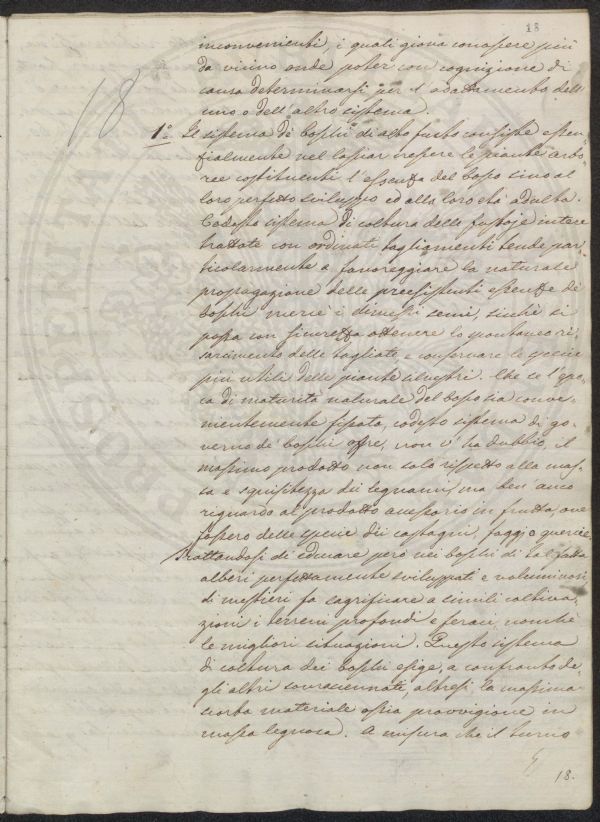 18
18
inconvenienti, i quali giova conoscere più
da vicino onde poter con cognizione di
causa determinarsi per l'adattamento dell'
uno o dell'altro sistema.
1° Il sistema di boschi di alto fusto consiste essen-
zialmente nel lasciar crescere le piante arbo-
ree costituenti l'essenza del bosco sino al
loro perfetto sviluppo ed alla loro età adulta.
Codesto sistema di coltura delle fustoje interte
trattate con ordinati tagliamenti tende par
ticolarmente a favoreggiare la naturale
propagazione delle preesistenti essenze de'
boschi mercè i dimessi semi, sicchè si
possa con sicurezza ottenere lo spontaneo ri-
sarcimento delle tagliate, e conservare le specie
più utili delle piante silvestri. Che se l'epo-
ca di maturità naturale del bosco sia conve-
nientemente fissata, codesto sistema di go-
verno de' boschi offre, non v'ha dubbio, il
massimo prodotto non solo rispetto alla mas-
sa e squisitezza dei legnami, ma ben anco
riguardo al prodotto accessorio in frutta, ove
fossero delle specie di castagni, faggi o quercie.
Trattandosi di educare però nei boschi di tal fatta
alberi perfettamente sviluppati e voluminosi
di mestieri fa sagrificare a simili coltiva-
zioni i terreni profondi e feraci, nonchè
le migliori situazioni. Questo sistema
di coltura dei boschi esige, a confronto de-
gli altri sovraccennati, altresì la massima
scorta materiale ossia provvigione in
massa legnosa. A misura che il turno
18.